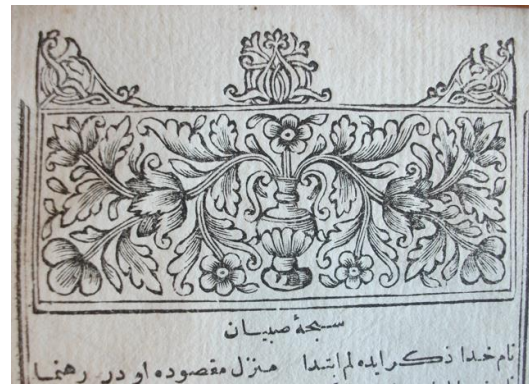 سبحهٔ صبیان
نام خدا ذكر ایده لم ابتدا منزل مقصوده او در رهنما